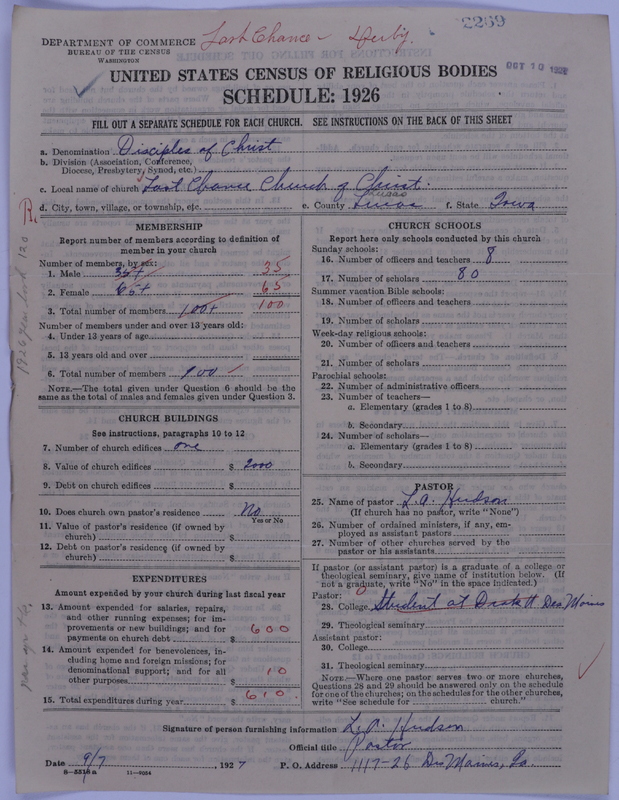 Last Chance - Derby.
2269
OCT 10 1928
DEPARTMENT OF COMMERCE
BUREAU OF THE CENSUS
WASHINGTON
UNITED STATES CENSUS OF RELIGIOUS BODIES
SCHEDULE: 1926
FILL OUT A SEPARATE SCHEDULE FOR EACH CHURCH. SEE INSTRUCTIONS ON THE BACK OF THIS SHEET
a. Denomination Disciples of Christ
b. Division (Association, Conference,
Diocese, Presbytery, Synod, etc.)
c. Local name of church Last Chance Church of Christ.
d. City, town, village, or township, etc. e. County Lucas f. State Iowa
R.
1926 year book 120
MEMBERSHIP
Report number of members according to definition of
member in your church
Number of members, by sex:
1. Male 35+ 35
2. Female 65+ 65
3. Total number of members 100+ 100
Number of members under and over 13 years old:
4. Under 13 years of age
5. 13 years old and over
6. Total number of members 100
NOTE.—The total given under Question 6 should be the
same as the total of males and females given under Question 3.
CHURCH BUILDINGS
See instructions, paragraphs 10 to 12
7. Number of church edifices one
8. Value of church edifices $ 2000
9. Debt on church edifices $
10. Does church own pastor's residence No
Yes or No
11. Value of pastor's residence (if owned by
church) $
12. Debt on pastor's residence (if owned by
church) $
EXPENDITURES
Amount expended by your church during last fiscal year
13. Amount expended for salaries, repairs,
and other running expenses; for im-
provements or new buildings; and for
payments on church debt $ 600
14. Amount expended for benevolences, in-
cluding home and foreign missions; for
denominational support; and for all
other purposes $ 10
15. Total expenditures during year $ 610.
CHURCH SCHOOLS
Report here only schools conducted by this church
Sunday schools:
16. Number of officers and teachers 8
17. Number of scholars 80
Summer vacation Bible schools:
18. Number of officers and teachers
19. Number of scholars
Week-day religious schools:
20. Number of officers and teachers
21. Number of scholars
Parochial schools:
22. Number of administrative officers
23. Number of teachers—
a. Elementary (grades 1 to 8)
b. Secondary
24. Number of scholars—
a. Elementary (grades 1 to 8)
b. Secondary
PASTOR
25. Name of pastor L.A. Hudson
(If church has no pastor, write "None")
26. Number of ordained ministers, if any, em-
ployed as assistant pastors
27. Number of other churches served by the
pastor or his assistants
If pastor (or assistant pastor) is a graduate of a college or
theological seminary, give name of institution below. (If
not a graduate, write "No" in the space indicated.)
Pastor:
28. College Student at Drake U Des Moines
29. Theological seminary
Assistant pastor:
30. College
31. Theological seminary
NOTE.—Where one pastor serves two or more churches,
Questions 28 and 29 should be answered only on the schedule
for one of the churches; on the schedules for the other churches,
write "See schedule for church."
Signature of person furnishing information L.A. Hudson
Official title Pastor
Date 9/7, 1927 P. O. Address 1117-26 Des Moines, Ia.
8-5518a 11-9024